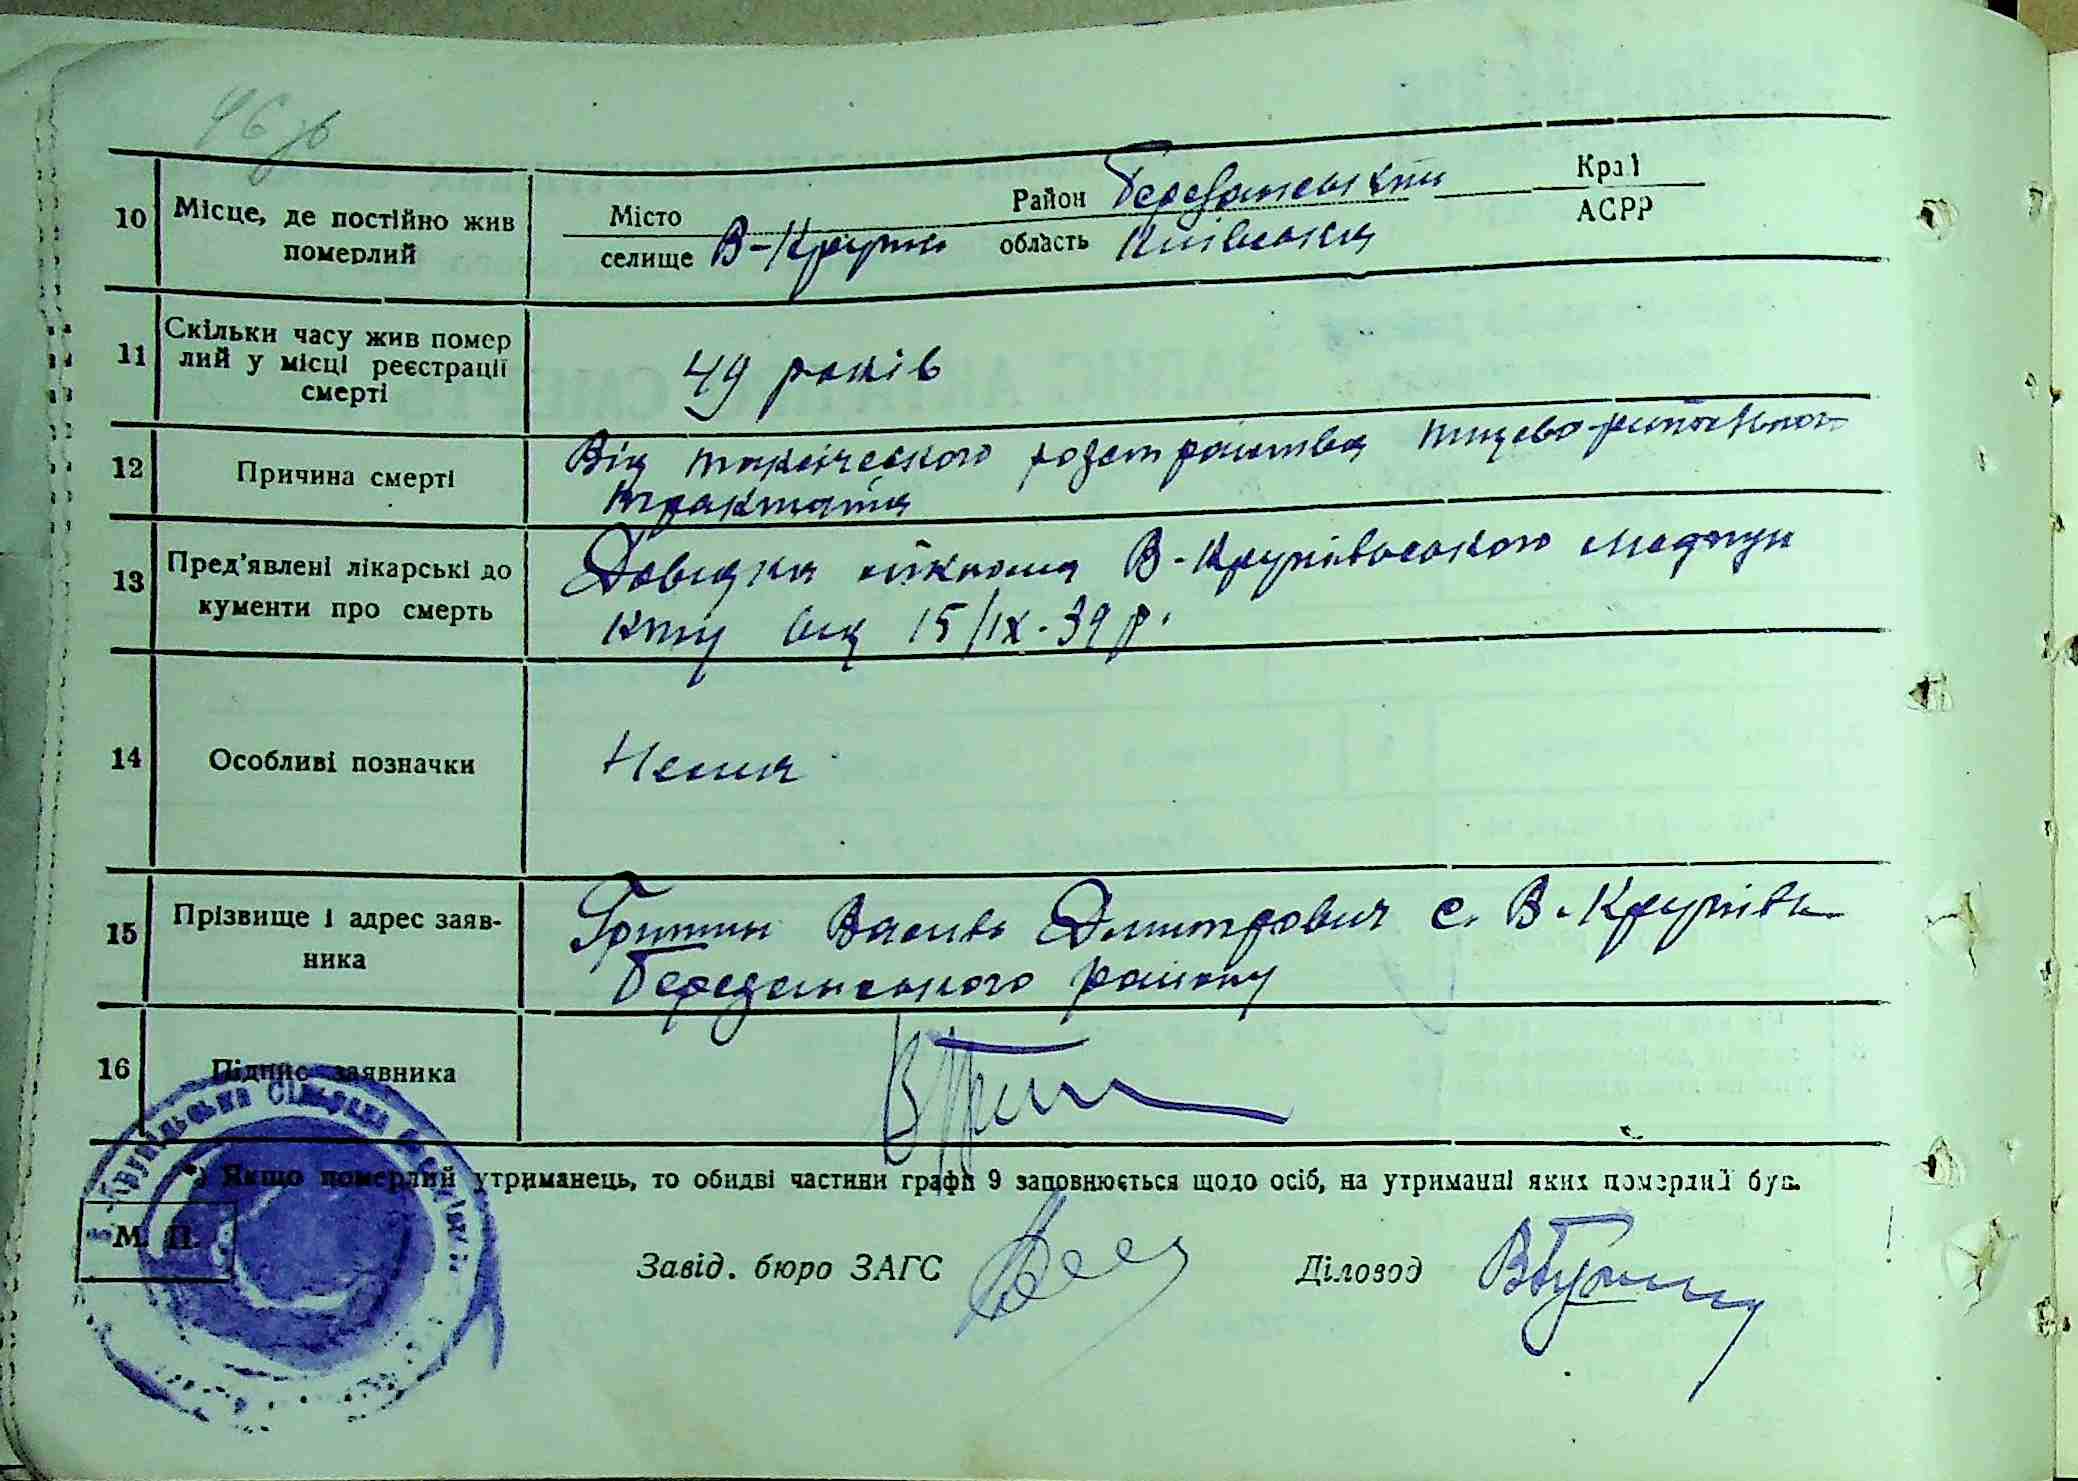 46 зв
10 Місце, де постійно жив померлий
Місто Район Березанський Край
селище В-Крупіль область Київська АСРР
11 Скільки часу жив помер
лий у місці реєстрації
смерті
49 років
12 Причина смерті
Від токсического розстройства пищево-
тракта
13 Пред'явлені лікарські до
кументи про смерть
Довідка В-Крупільського медпун
кту від 15/IX-39 р.
14 Особливі позначки
Нема
15 Прізвище і адрес заяв-
ника
Василь Дмитрович с. В-Крупіль
Березанського району
16 Підпис заявника
*) Якщо померлий утриманець, то обидві частини графи 9 заповнюється щодо осіб, на утриманні яких померлий був.
М. П.
Завід. бюро ЗАГС Діловод